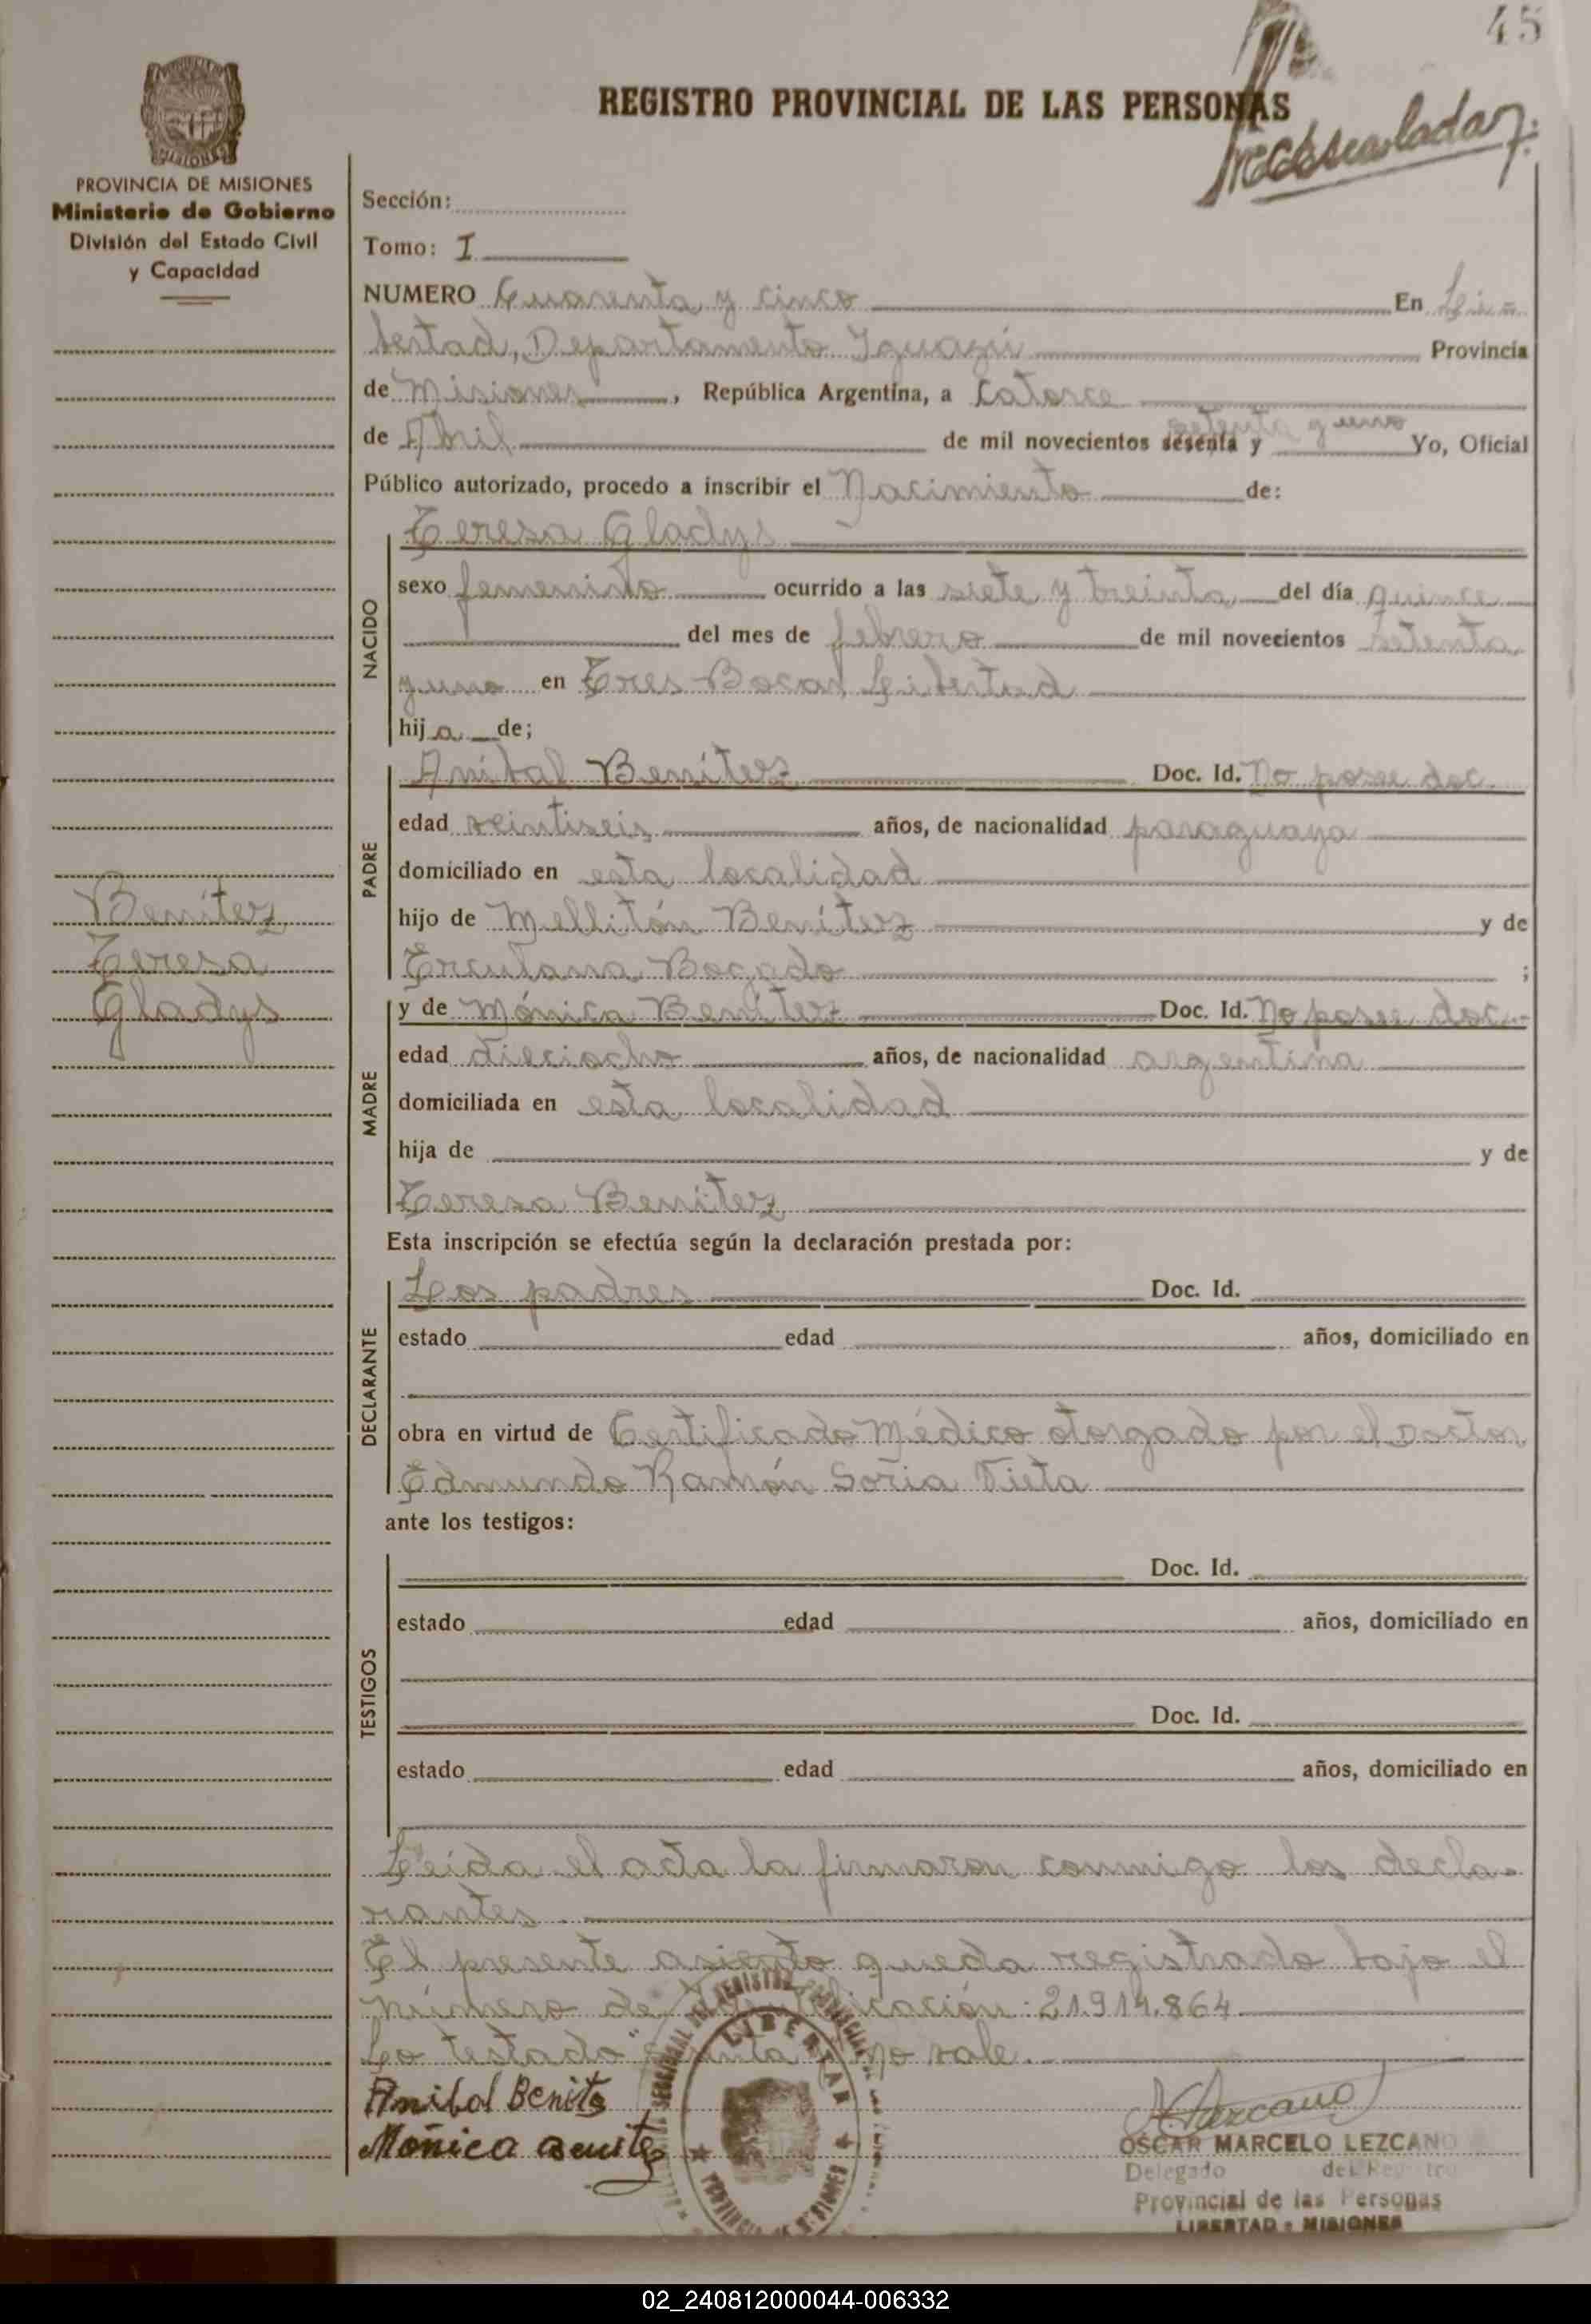 45
REGISTRO PROVINCIAL DE LAS PERSONAS
MISIONES
PROVINCIA DE MISIONES
Ministerio de Gobierno
División del Estado Civil
y Capacidad
Sección:
Tomo: I
NUMERO Cuarenta y cinco En Li-
bertad, Departamento Iguazú Provincia
de Misiones, República Argentina, a Catorce
de Abril de mil novecientos sesenta y setenta y uno Yo, Oficial
Público autorizado, procedo a inscribir el Nacimiento de:
NACIDO
Teresa Gladys
sexo femenino ocurrido a las siete y treinta del día quince
del mes de febrero de mil novecientos setenta
y uno en Tres Bocas Libertad
hija de;
PADRE
Anibal Benítez Doc. Id. No posee doc.
edad veintiseis años, de nacionalidad paraguaya
domiciliado en esta localidad
hijo de Mellitón Benítez y de
Erculana Bogado ;
Benítez
Teresa
Gladys
MADRE
y de Mónica Benítez Doc. Id. No posee doc.-
edad dieciocho años, de nacionalidad argentina
domiciliada en esta localidad
hija de y de
Teresa Benítez
Esta inscripción se efectúa según la declaración prestada por:
DECLARANTE
Los padres Doc. Id.
estado edad años, domiciliado en
obra en virtud de Certificado Médico otorgado por el Doctor
Edmundo Ramón Soria Vieta
ante los testigos:
TESTIGOS
Doc. Id.
estado edad años, domiciliado en
Doc. Id.
estado edad años, domiciliado en
Leída el acta la firmaron conmigo los decla-
rantes.
El presente asiento queda registrado bajo el
número de 21.914.864
Lo testado no vale.
Anibal Benites
Mónica Benitez
LIBERTAD
PROVINCIA DE MISIONES
OSCAR MARCELO LEZCANO
Delegado del Registro
Provincial de las Personas
LIBERTAD - MISIONES
02_240812000044-006332